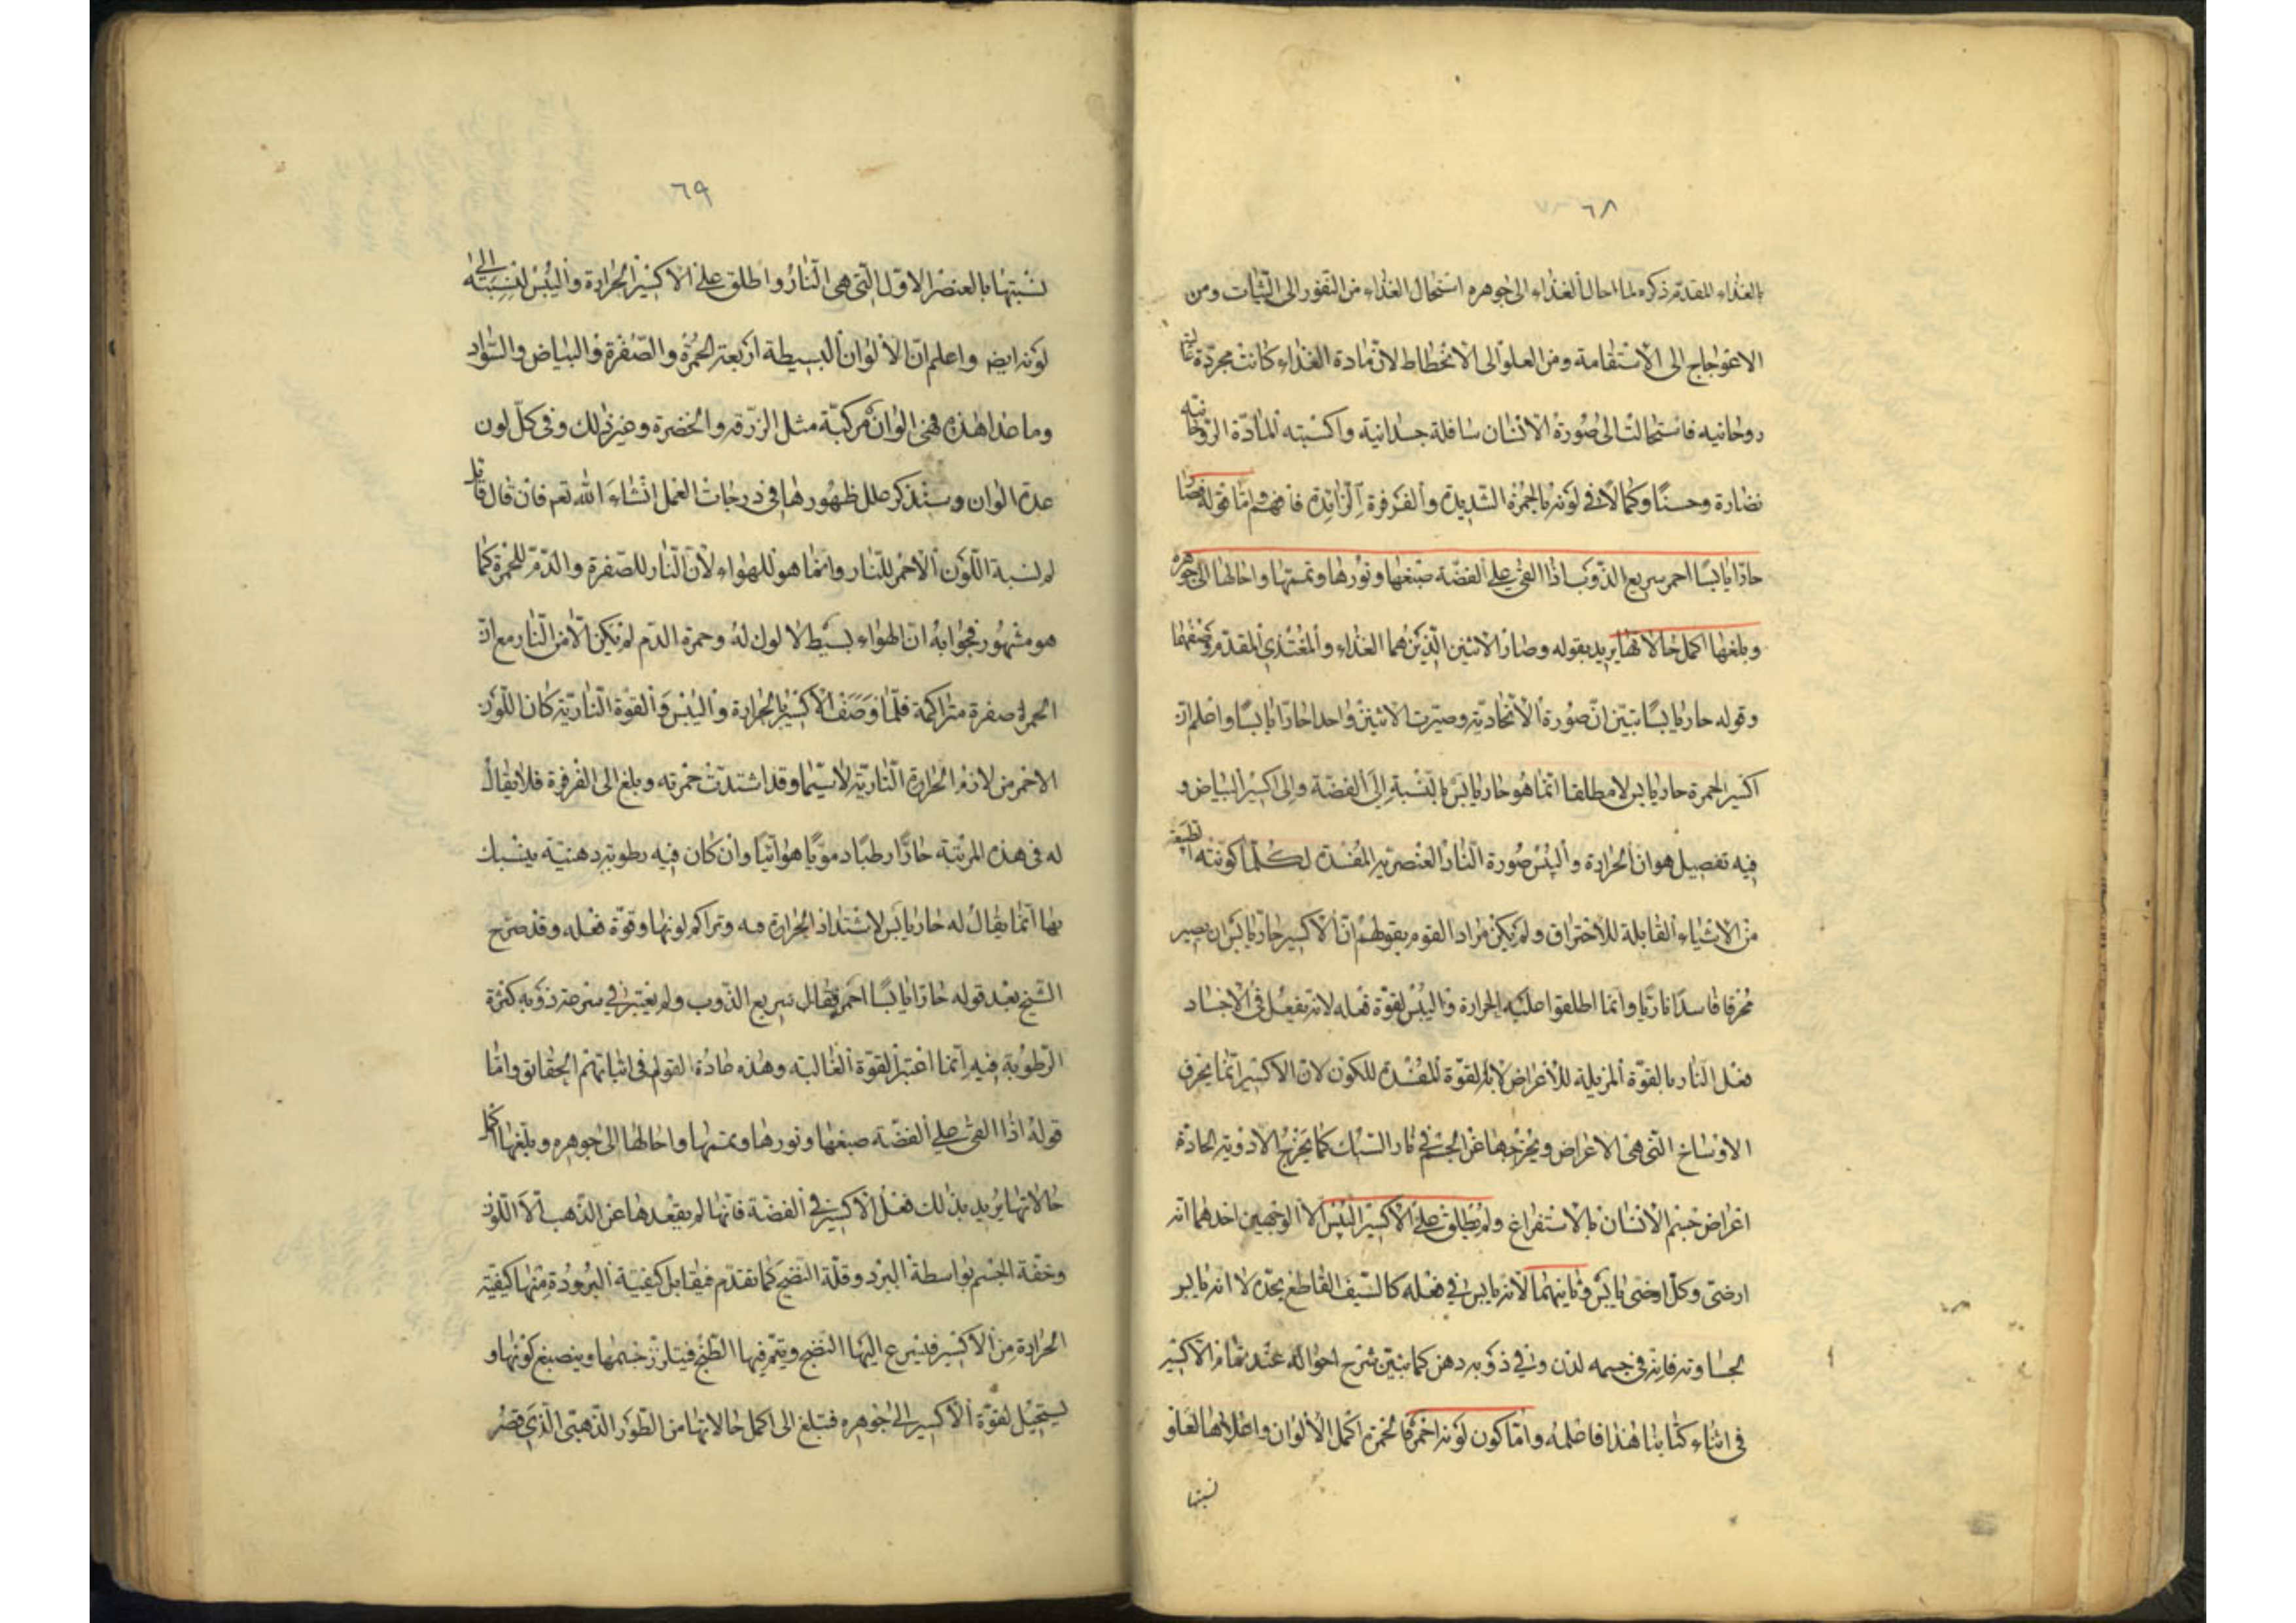 ٦٨
بالغذاء المقدم ذكره لما احال الغذاء الى جوهره استحال الغذاء من التفور الى الثبات ومن
الاعوجاج الى الاستقامة ومن العلو الى الانحطاط لان مادة الغذاء كانت مجردة
روحانيه فاستحالت الى صورة الانسان سافلة جسدانية واكسبته المادة الروحانيه
نضارة وحسنًا وكمالًا فى لونه بالحمرة الشديدة والفرفرة الزايدة فافهم واما قوله فصارا
حارًا يابسًا احمر سريع الذوب اذا القى على الفضة صبغها ونورها وتممها واحالها الى جوهره
وبلغها اكمل حالاتها يريد بقوله وصار الاثنين الذين هما الغذاء والمغتذى المقدم وصفهما
وقوله حار يابسًا تبيّن انّ صورة الاتحاديه وصيّرت الاثنين واحدا حارًا يابسًا واعلم ان
اكسير الحمرة حار يابس لا مطلقا انما هو حار يابس بالنسبة الى الفضة والى اكسير البياض و
فيه تفصيل هو ان الحرارة واليبس صورة النار العنصريه المفسدة لكلما كونته الطبيعة
من الاشياء القابلة للاحتراق ولم يكن مراد القوم بقولهم ان الاكسير حار يابس ان يصير
محرقا فاسدًا ناريًا وانما اطلقوا عليه الحرارة واليبس لقوة فعله لانه يفعل فى الاجساد
فعل النار بالقوة المزيلة للاعراض لا بالقوة المفسدة للكون لان الاكسير انما يحرق
الاوساخ التى هى الاعراض ويخرجها عن الجسم فى نار السبك كما يخرج الادويه الحادة
اعراض جسم الانسان بالاستفراغ ولم يطلق على الاكسير اليبس الا لوجهين احدهما انه
ارضى وكل ارضى يابس وثانيهما لانه يابس فى فعله كالسيف القاطع بحده لا انه يابس
لجساوته فانه فى جسمه لدن وفى ذوبه دهن كما نبين شرح احواله عند تمام الاكسير
فى اثناء كتابنا هذا فاعلمه واما كون لونه احمر فالحمرة اكمل الالوان واعلاها لعلو
نسبتها
٦٩
نسبتها بالعنصر الاول التى هى النار واطلق على الاكسير الحرارة واليبس لنسبته الى
لونه ايضا واعلم ان الالوان البسيطة اربعة الحمرة والصفرة والبياض والسواد
وما عدا هذه فهى الوان مركبة مثل الزرقه والخضرة وغير ذلك وفى كل لون
عدة الوان وسنذكر علل ظهورها فى درجات العمل انشاء الله تعم فان قال قائل
لم نسبة اللون الاحمر للنار وانما هو للهواء لان النار للصفرة والدم للحمرة كما
هو مشهور فجوابه ان الهواء بسيط لا لون له وحمرة الدم لم تكن الا من النار مع ان
الحمرة صفرة متراكمة فلما وصف الاكسير بالحرارة واليبس والقوة الناريّة كان اللون
الاحمر من لازم الحرارة الناريّة لاسيّما وقد اشتدت حمرته وبلغ الى الفرفرة فلا يقال
له فى هذه المرتبة حارًا رطبًا دمويًا هوائيًا وان كان فيه رطوبة دهنية ينسبك
بها انما يقال له حار يابس لاشتداد الحرارة فيه وتراكم لونها وقوة فعله وقد صرح
الشيخ بعد قوله حارًا يابسًا احمر فقال سريع الذوب ولم يعتبر فى سرعة ذوبه كثرة
الرطوبة فيه انما اعتبر القوة الغالبة وهذه عادة القوم فى اثباتهم الحقائق واما
قوله اذا القى على الفضة صبغها ونورها وتممها واحالها الى جوهره وبلغها اكمل
حالاتها يريد بذلك فعل الاكسير فى الفضة فانها لم يقعدها عن الذهب الا اللون
وخفة الجسم بواسطة البرد وقلة النضج كما تقدم فيقابل كيفية البرودة منها كيفية
الحرارة من الاكسير فيسرع اليها النضج ويتم فيها الطبخ فيتلزز جسمها وينصبغ لونها و
يستحيل لقوة الاكسير الى جوهره فتبلغ الى اكمل حالاتها من الطور الذهبى الذى قصر